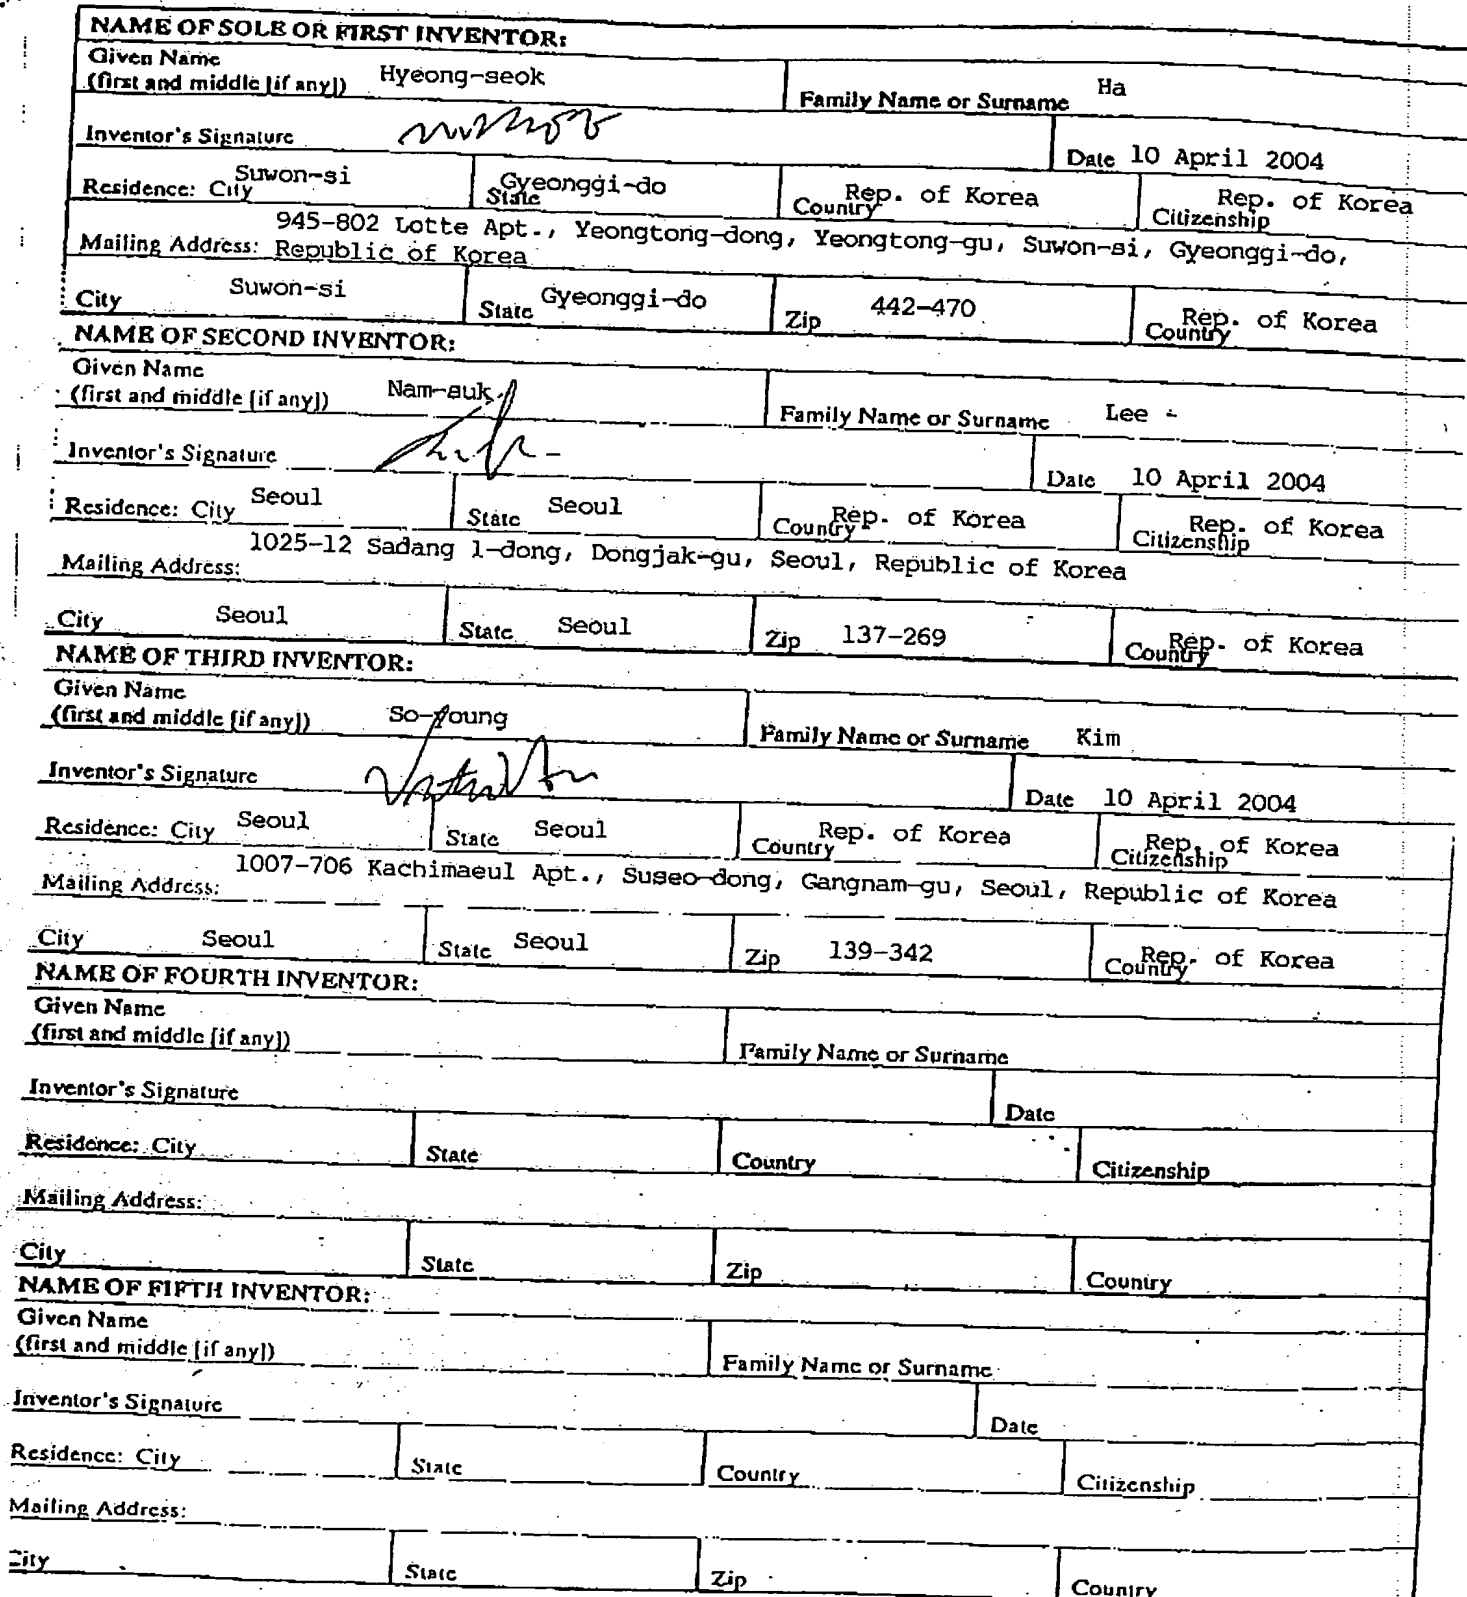 NAME OF SOLE OR FIRST INVENTOR:
Given Name
(first and middle [if any]) Hyeong-seok Family Name or Surname Ha
Inventor's Signature Date 10 April 2004
Residence: City Suwon-si State Gyeonggi-do Country Rep. of Korea Citizenship Rep. of Korea
945-802 Lotte Apt., Yeongtong-dong, Yeongtong-gu, Suwon-si, Gyeonggi-do,
Mailing Address: Republic of Korea
City Suwon-si State Gyeonggi-do Zip 442-470 Country Rep. of Korea
NAME OF SECOND INVENTOR:
Given Name
(first and middle [if any]) Nam-suk Family Name or Surname Lee
Inventor's Signature Date 10 April 2004
Residence: City Seoul State Seoul Country Rep. of Korea Citizenship Rep. of Korea
Mailing Address: 1025-12 Sadang 1-dong, Dongjak-gu, Seoul, Republic of Korea
City Seoul State Seoul Zip 137-269 Country Rep. of Korea
NAME OF THIRD INVENTOR:
Given Name
(first and middle [if any]) So-young Family Name or Surname Kim
Inventor's Signature Date 10 April 2004
Residence: City Seoul State Seoul Country Rep. of Korea Citizenship Rep. of Korea
Mailing Address: 1007-706 Kachimaeul Apt., Suseo-dong, Gangnam-gu, Seoul, Republic of Korea
City Seoul State Seoul Zip 139-342 Country Rep. of Korea
NAME OF FOURTH INVENTOR:
Given Name
(first and middle [if any]) Family Name or Surname
Inventor's Signature Date
Residence: City State Country Citizenship
Mailing Address:
City State Zip Country
NAME OF FIFTH INVENTOR:
Given Name
(first and middle [if any]) Family Name or Surname
Inventor's Signature Date
Residence: City State Country Citizenship
Mailing Address:
City State Zip Country